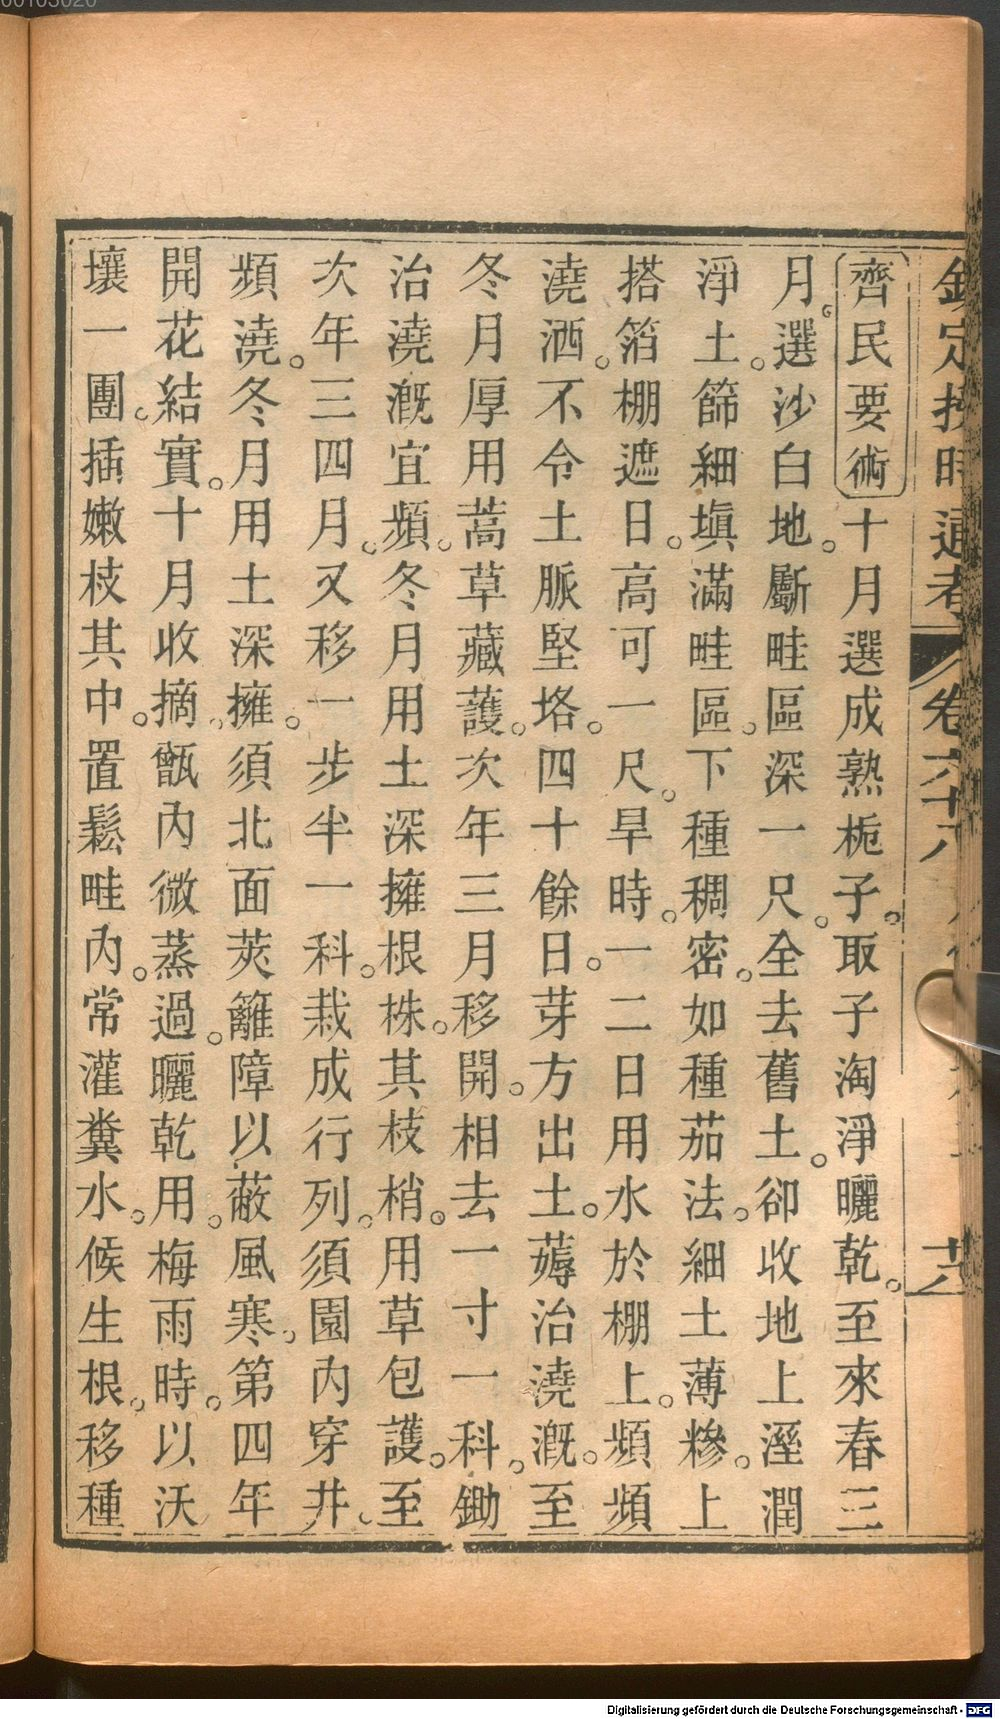 00103020
欽定授時通考 卷六十八
齊民要術十月選成熟梔子。取子淘淨曬乾。至來春三
月。選沙白地。斸畦區深一尺。全去舊土。卻收地上溼潤
淨土。篩細塡滿畦區。下種稠密。如種茄法。細土薄糝。上
搭箔棚遮日。高可一尺。旱時。一二日用水於棚上。頻頻
澆洒。不令土脈堅垎。四十餘日。芽方出土。薅治澆漑。至
冬月厚用蒿草藏護。次年三月移開。相去一寸一科。鋤
治澆漑宜頻。冬月用土深擁根株。其枝梢。用草包護。至
次年三四月。又移一步半一科。栽成行列。須園內穿井。
頻澆。冬月用土深擁。須北面莢籬障以蔽風寒。第四年
開花結實。十月收摘。甑內微蒸過。曬乾用。梅雨時。以沃
壤一團。插嫩枝其中。置鬆畦內。常灌糞水。候生根。移種
Digitalisierung gefördert durch die Deutsche Forschungsgemeinschaft - DFG